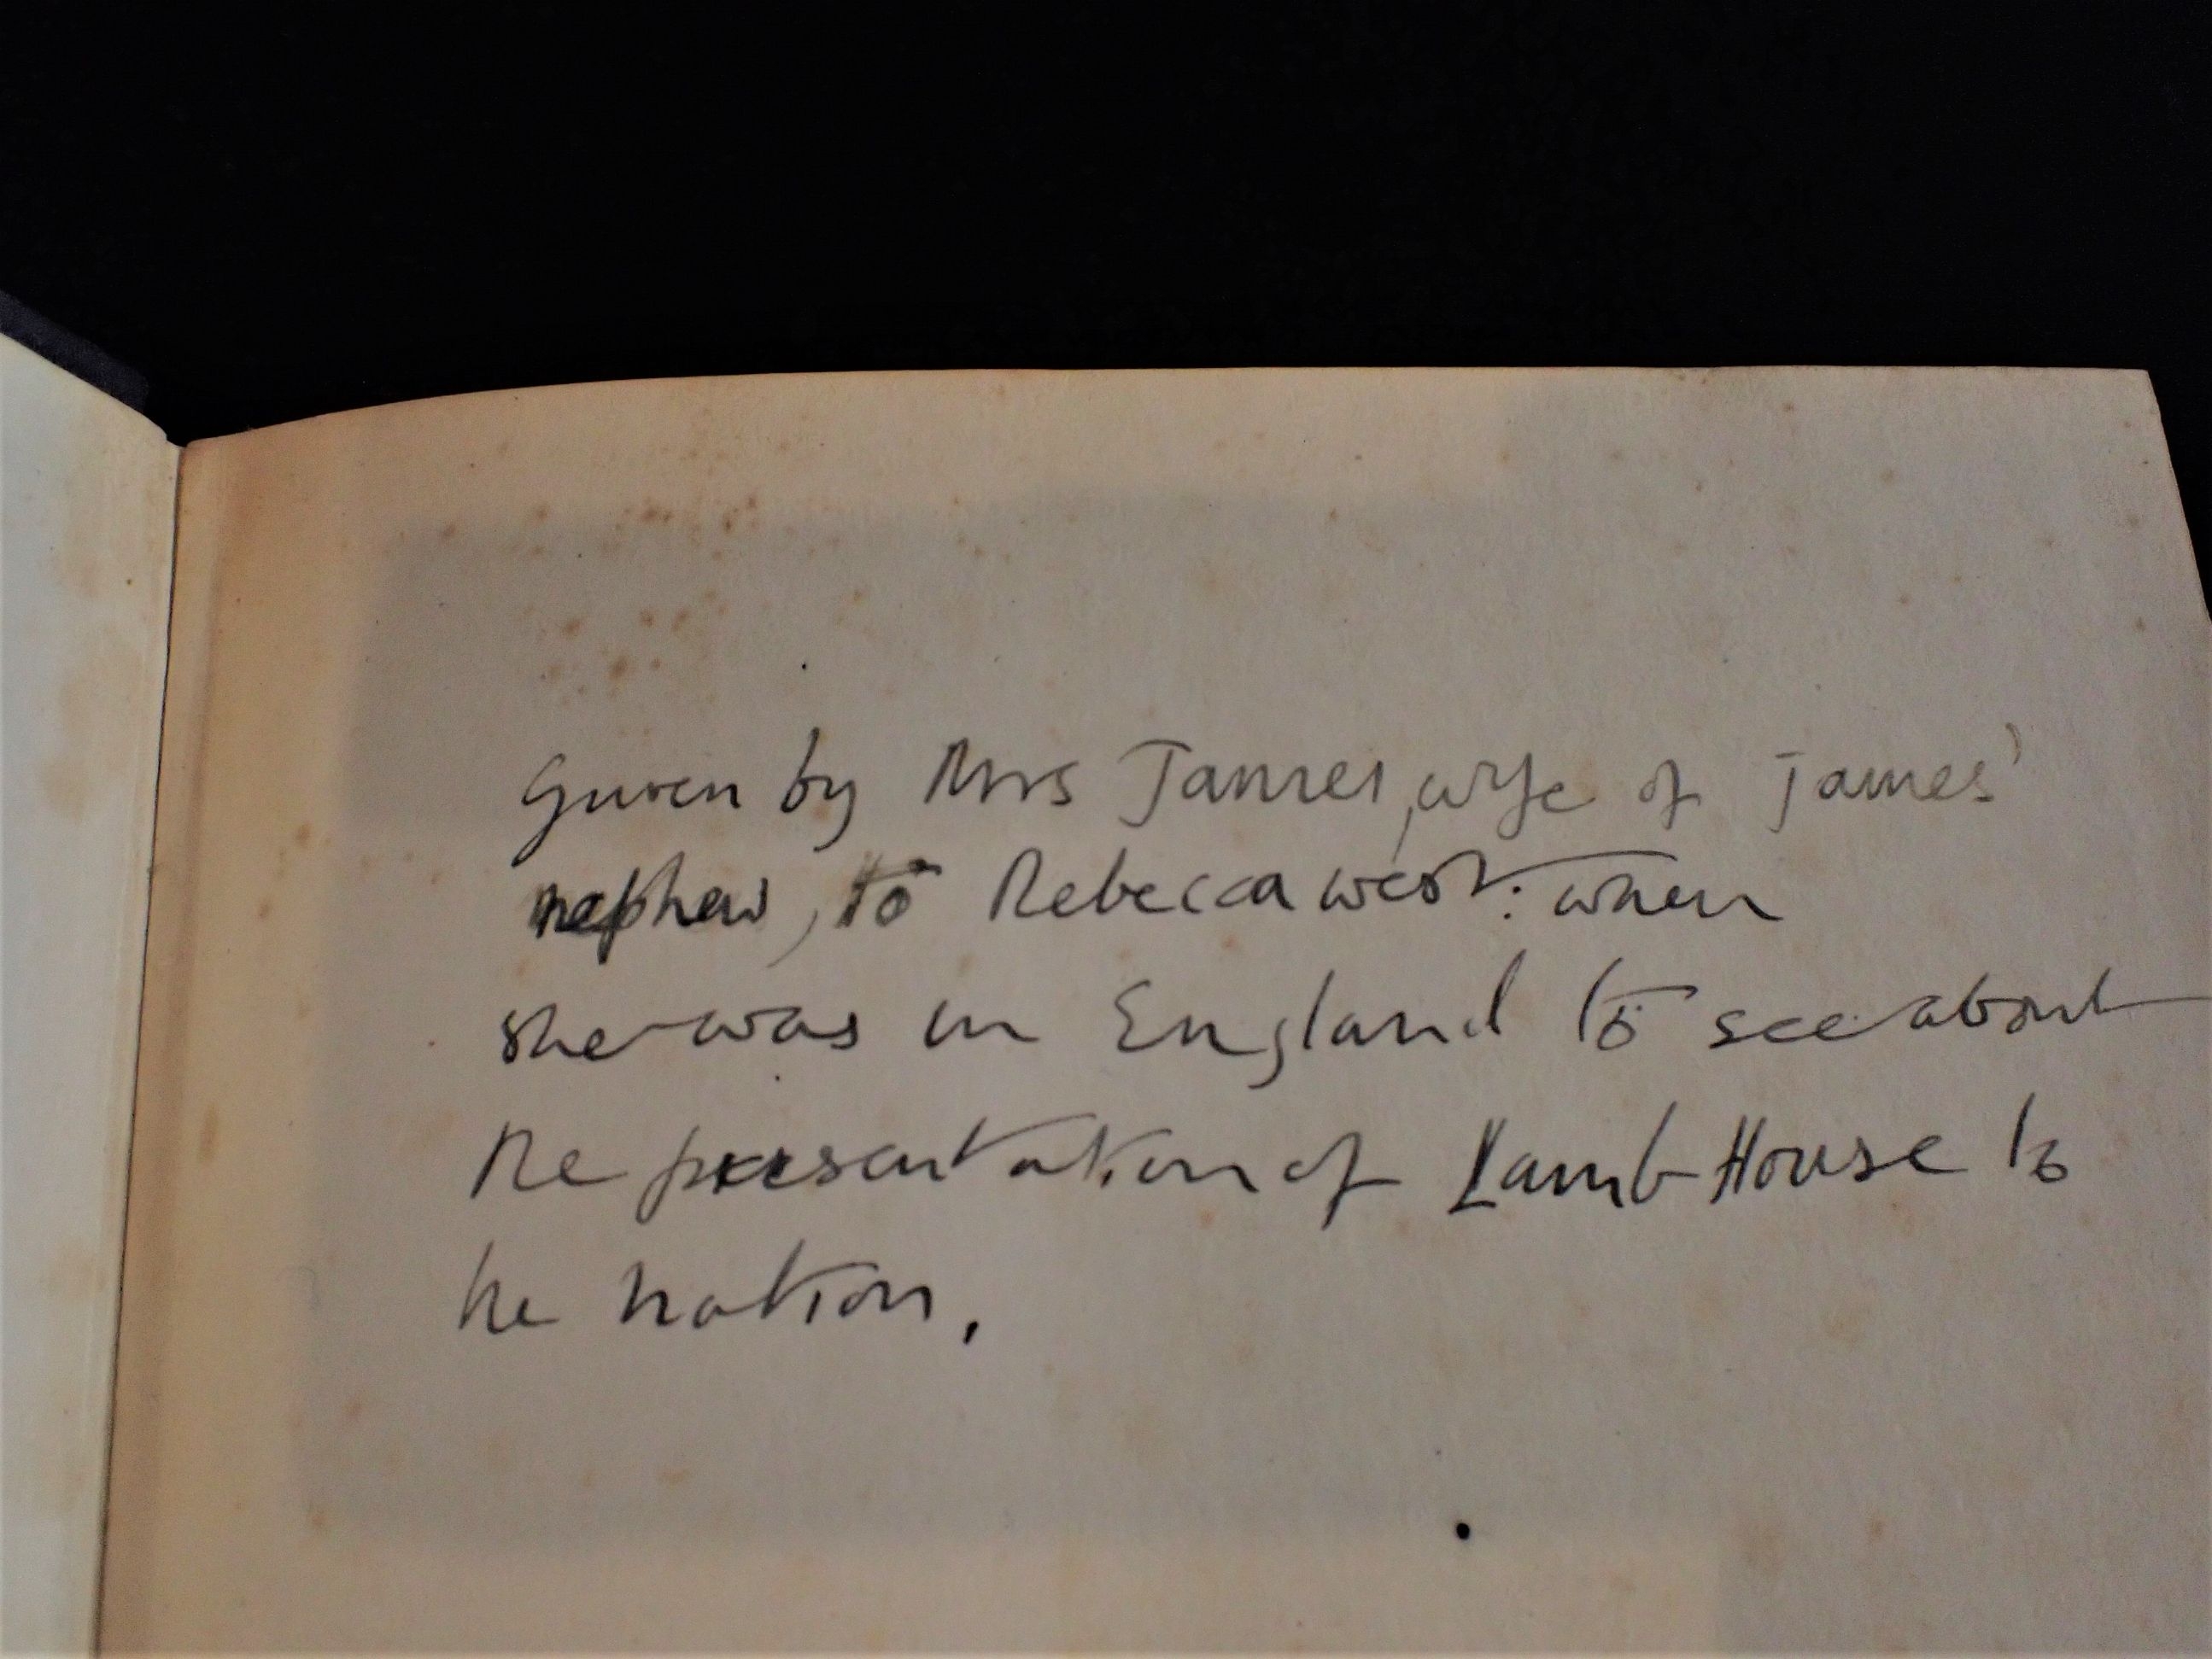 Given by Mrs James, wife of James'
nephew, to Rebecca West: when
she was in England to see about
the presentation of Lamb House to
the nation.